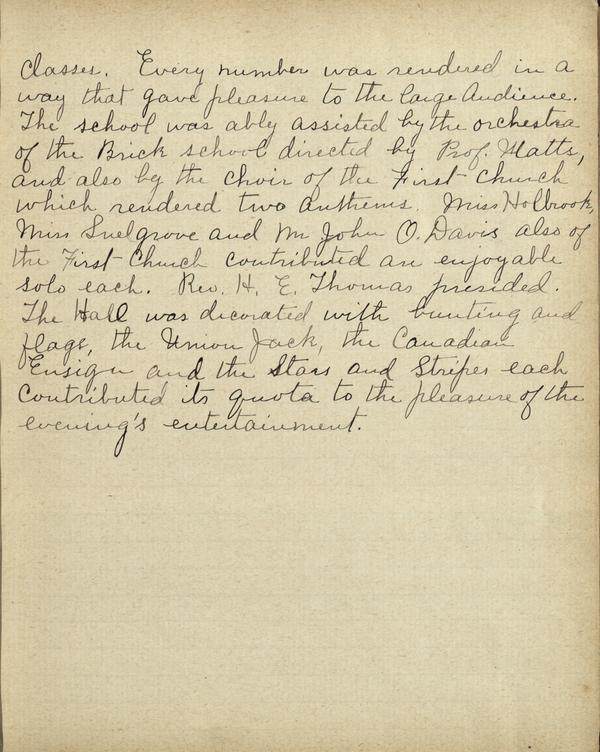 Classes. Every number was rendered in a
way that gave pleasure to the large Audience.
The school was ably assisted by the orchestra
of the Brick school directed by Prof.
and also by the choir of the First Church
which rendered two anthems. Miss Holbrook,
Miss Snelgrove and Mr John O. Davis also of
the First Church contributed an enjoyable
solo each. Rev. H. E. Thomas presided.
The Hall was decorated with bunting and
flags, the Union Jack, the Canadian
Ensign and the Stars and Stripes each
Contributed its quota to the pleasure of the
evening's entertainment.